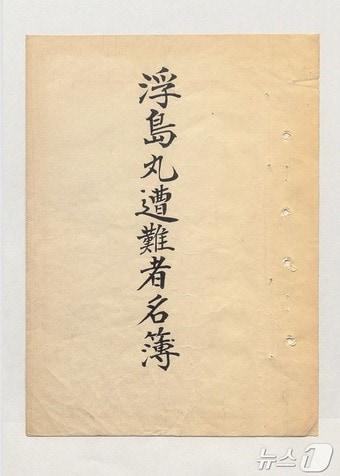 浮島丸遭難者名簿
뉴스1